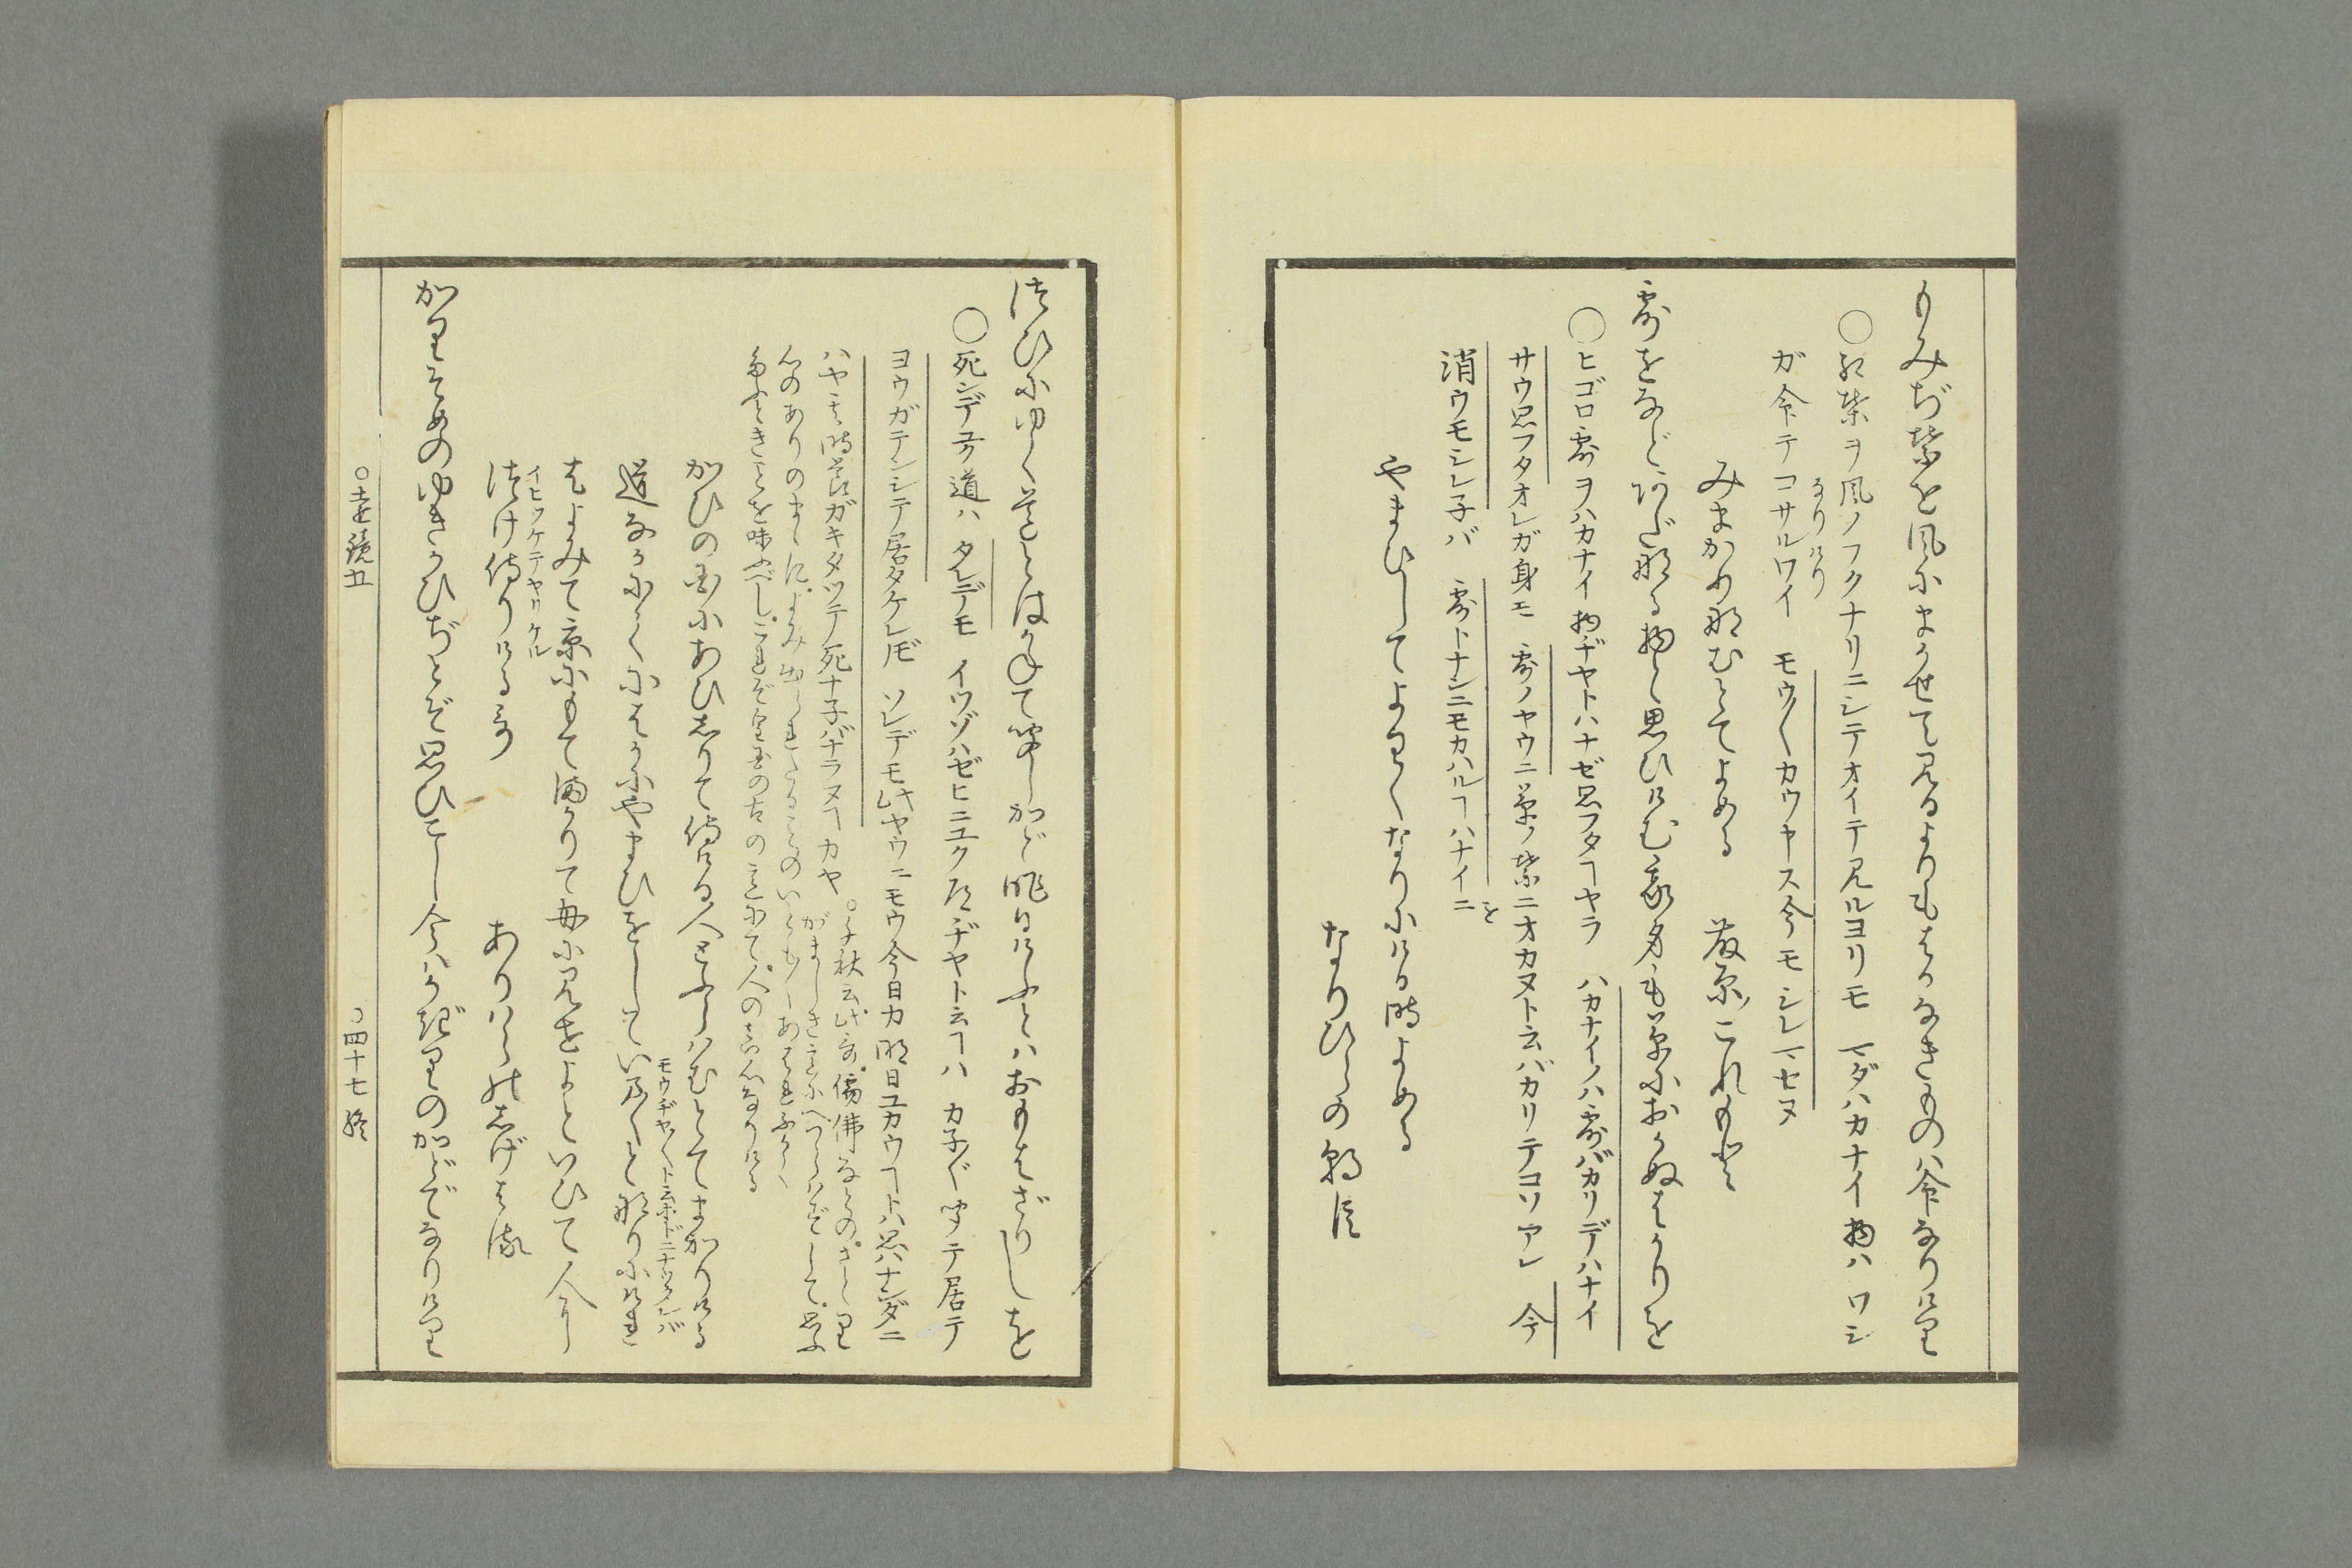 もみぢ葉を風にまかせて見るよりもはかなきものハ命なりけり
○紅葉ヲ風ノフクナリニシテオイテ見ルヨリモ マダハカナイ物ハ ワシ
ガ命テコサルワイ モウ〳〵カウヤス今モシレマセヌ
なりけり
みまかりなむとてよめる 藤原これもと
露をなどあだなる物と思ひけむわが身も草におかぬばかりを
○ヒゴロ露ヲハカナイ物ヂヤトハナゼ思フタヿヤラ ハカナイノハ露バカリデハナイ
サウ思フタオレガ身モ 露ノヤウニ草ノ葉ニオカヌト云バカリテコソアレ 今
消ウモシレ子バ 露トナンニモカハルヿハナイニ
を
やまひしてよわくなりにける時よめる
なりひらの朝臣
つひにゆく道とはかねて聞しかど昨日けふとハおもはざりしを
○死ンデユク道ハ タレデモ イツゾハゼヒニユク道ヂヤト云ヿハ カ子〴〵聞テ居テ
ヨウガテンシテ居タケレドモ ソレデモ此ヤウニモウ今日カ明日ユカウヿトハ思ハナンダニ
ハヤ其時節ガキタツテ死ナ子バナラヌヿカヤ
○千秋云此哥。儒佛などの。さとり
がましき意にへつらハずして。思ふ
心のありのまゝに。よみ出られたることのいとも〳〵あはれふかく
たふときことを味ふべし。これぞ皇国の古の意にて。人の真心なりける
かひの国にあひしりて侍ける人とふらハむとてまかりける
道なかにてにはかにやまひをしていま〳〵となりにけれ
モウヂヤ〳〵ト云ホドニナツタレバ
はよみて京にもてまかりて母に見せよといひて人に
つけ侍りける哥
イヒツケテヤリケル
ありハらのしげはる
かりそめのゆきかひぢとぞ思ひこし今ハかぎりのかどでなりけり
○遠鏡五
○四十七終